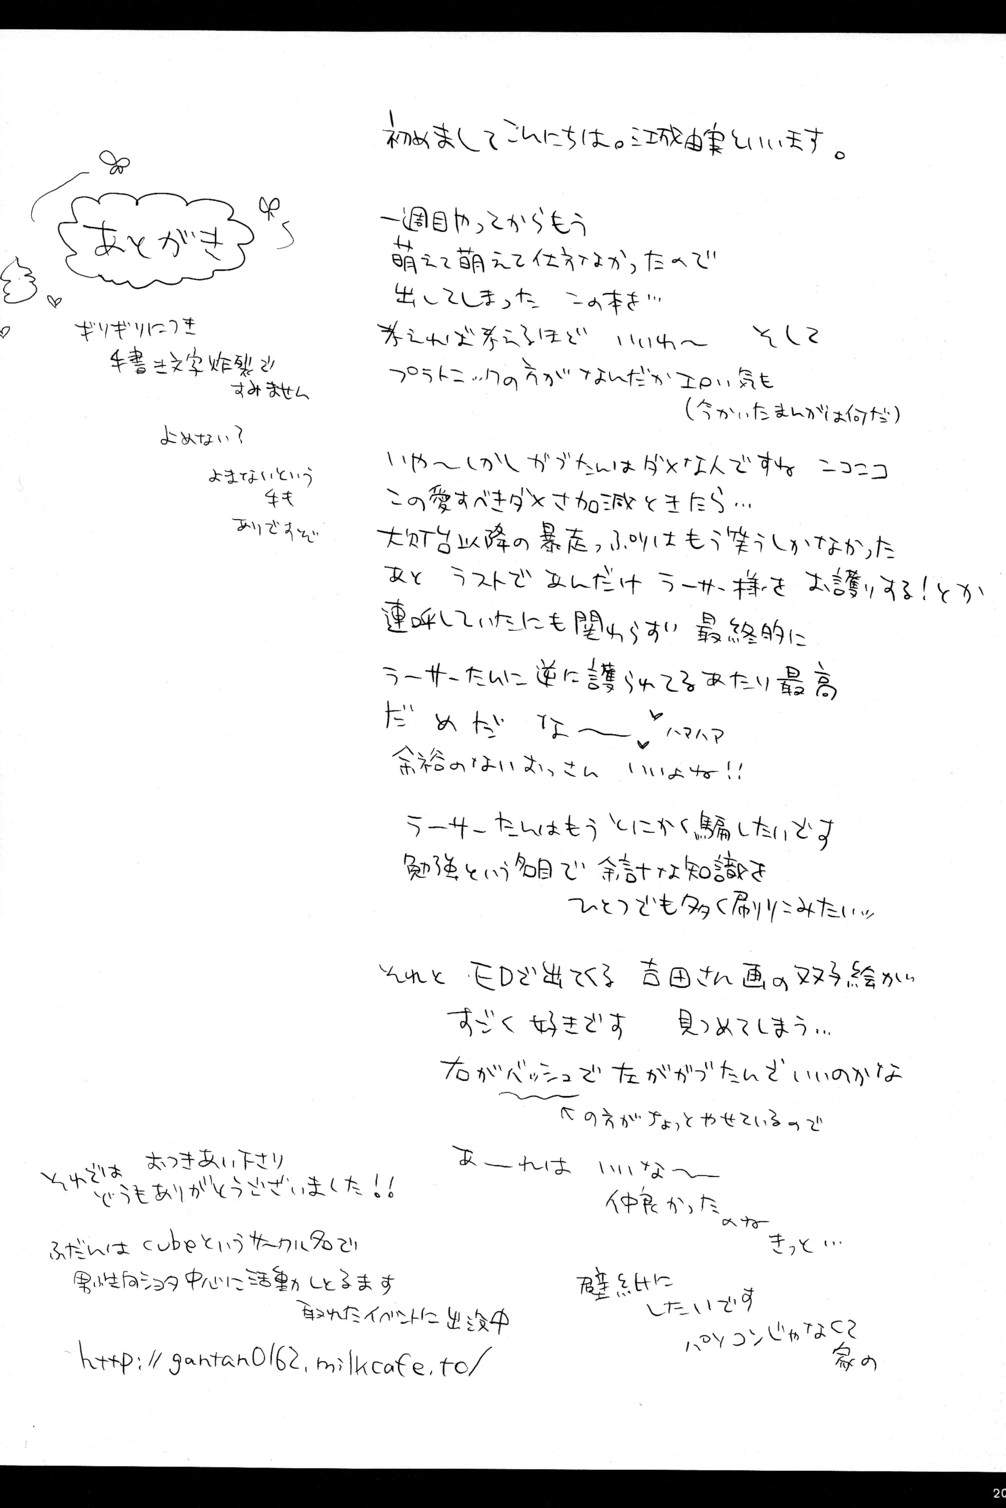 あとがき
ギリギリにつき
手書き文字炸裂で
すみません
よめない?
よまないという
手も
ありですぞ
初めましてこんにちは。江成由実といいます。
一週目やってからもう
萌えて萌えて仕方なかったので
出してしまった この本を…
考えれば考えるほど いいわ〜 そして
プラトニックの方がなんだかエロい気も
(今かいたまんがは何だ)
いや〜しかしガブたんはダメな人ですね ニコニコ
この愛すべきダメさ加減ときたら…
大灯台以降の暴走っぷりはもう笑うしかなかった
あと ラストであんだけ ラーサー様を お護りする!とか
連呼していたにも関わらず 最終的に
ラーサーたんに逆に護られてるあたり最高
だめだ な〜 ハァハァ
余裕のないおっさん いいよね!!
ラーサーたんはもう とにかく騙したいです
勉強という名目で 余計な知識を
ひとつでも多く刷りこみたいッ
それと EDで出てくる 吉田さん画の双子絵が
すごく 好きです 見つめてしまう…
右がバッシュで左がガブたんでいいのかな
↖の方がちょっとやせているので
あーれは いいな〜
仲良かった
のね
きっと…
壁紙に
したいです
パソコンじゃなくて
家の
それでは おつきあい下さり
どうもありがとうございました!!
ふだんは cubeというサークル名で
男性向ショタ中心に活動しとるます
取れたイベントに出没中
http://gantan0162.milkcafe.to/
20